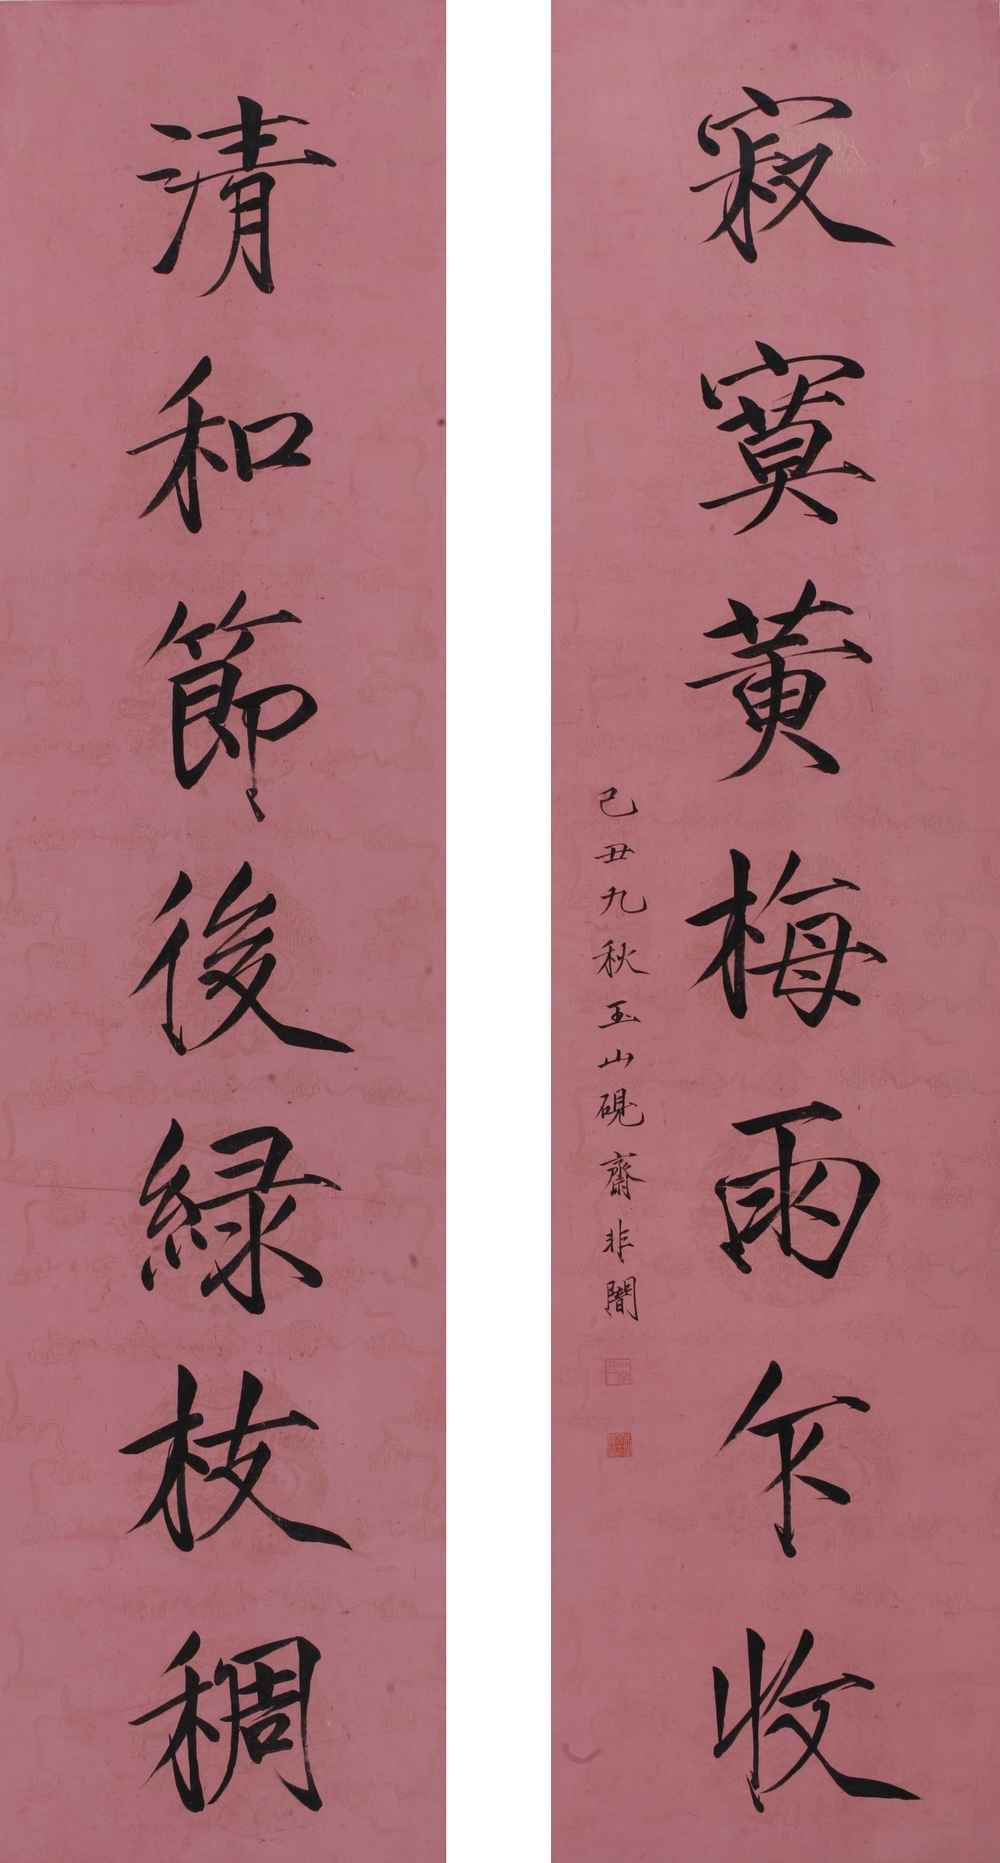 寂寞黄梅雨乍收
己丑九秋玉山砚斋非闇
清和節後緑枝稠